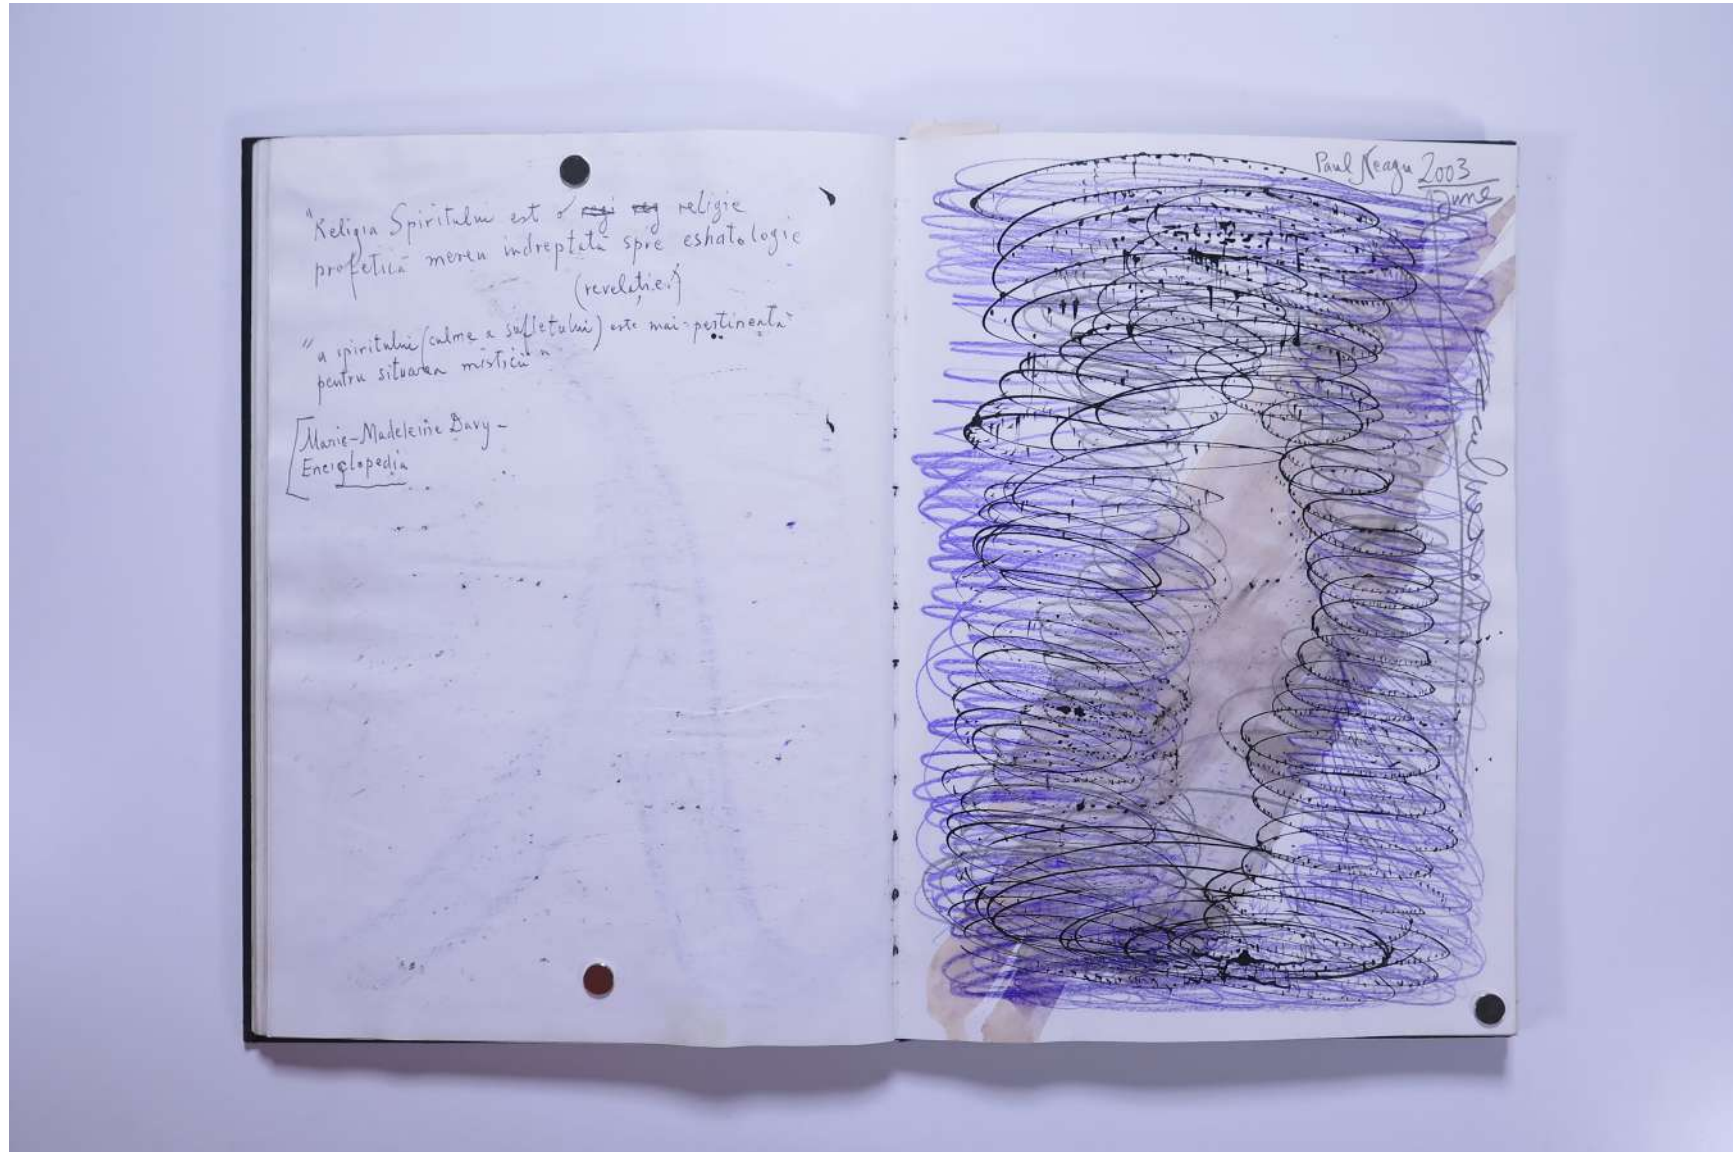 "Religia Spiritului est o religie
profetică mereu indreptată spre eshatologie
(revelație.)
"a spiritului (culme a sufletului) este mai-pertinentă
pentru situarea misticii"
Marie-Madeleine Davy -
Enciclopedia
Paul Neagu 2003
June